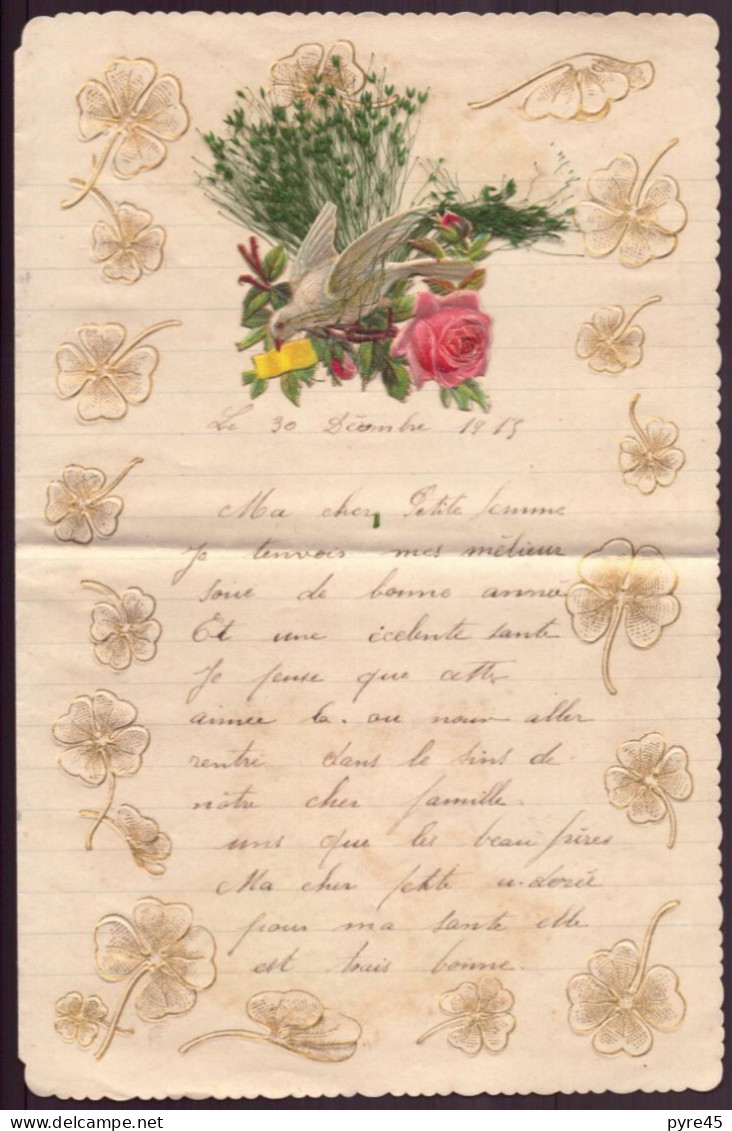 Le 30 Décmbre 1915
Ma cher Petite femme
Je tenvois mes mélieur
soue de bonne année
Et une icelente sante
Je pense que cette
année la ou nour aller
rentré dans le sins de
nôtre cher famille.
que les beau frères
Ma cher petite a.dorée
pour ma sante elle
est trais bonne.
pyre45